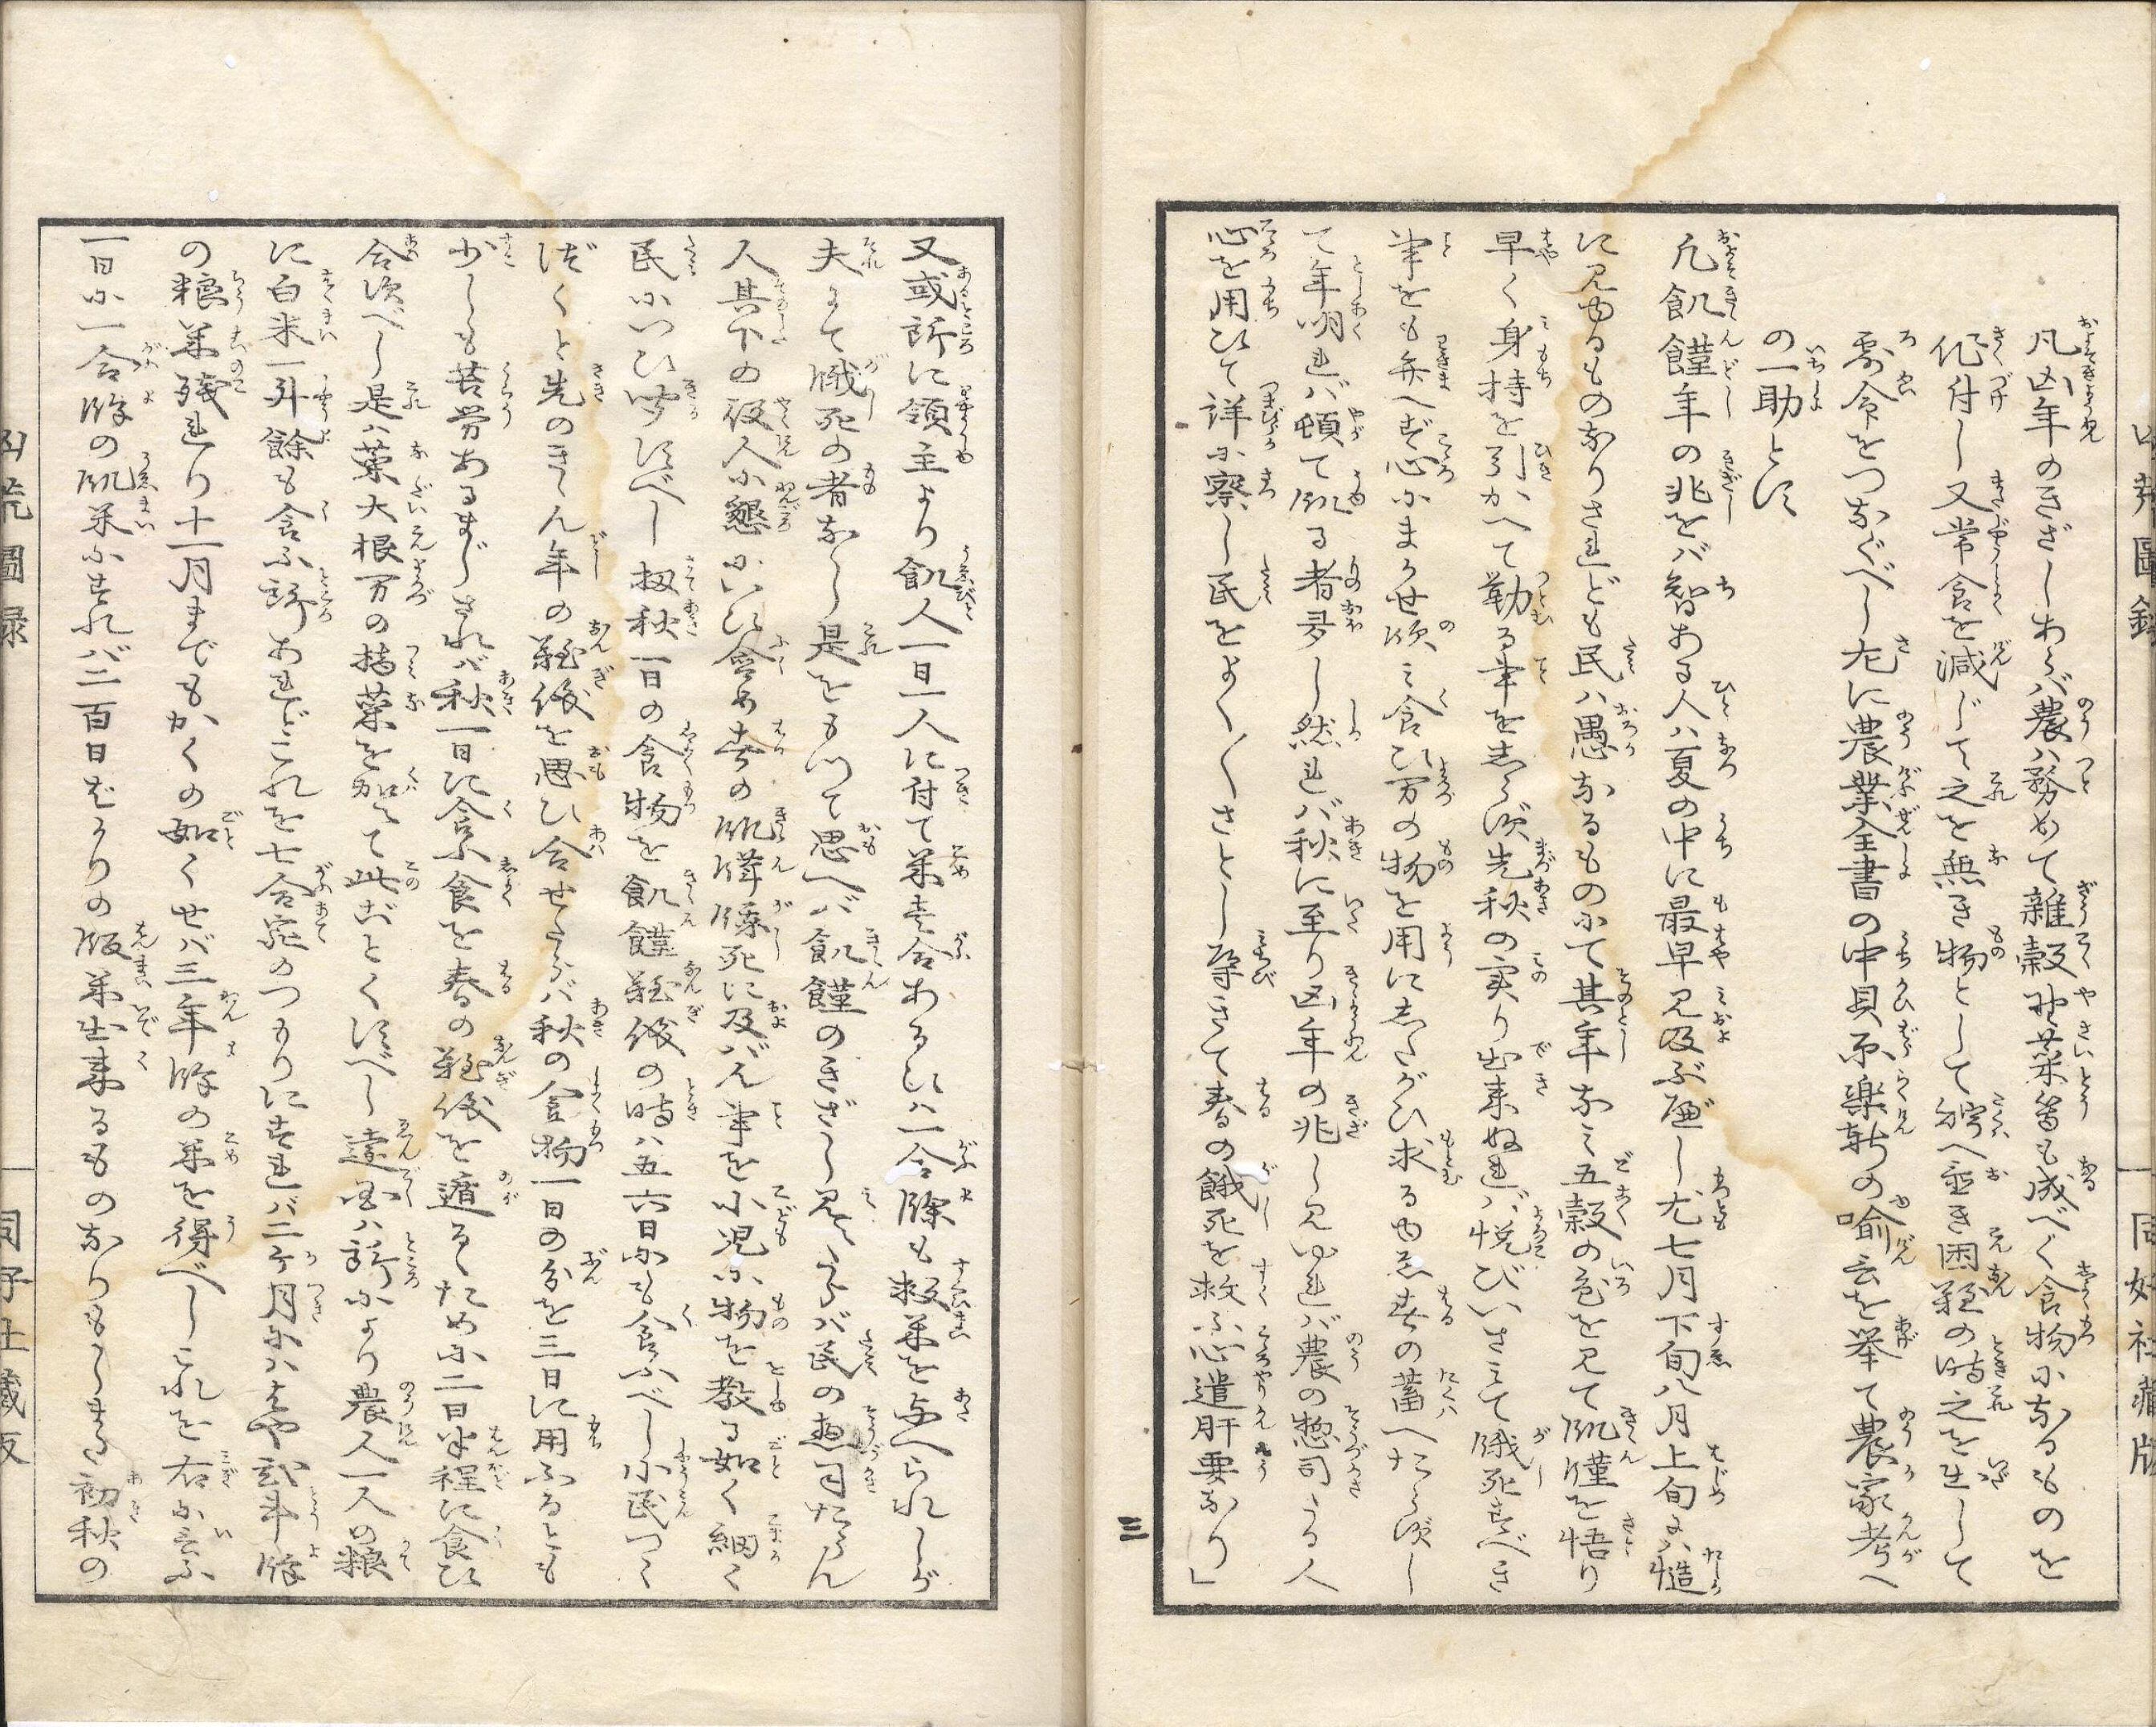 凡凶年のきざしあらバ農ハ務めて雑穀野菜等も成べく食物になるものを
作付し又常食を減じて之を無き物として貯へ置き困難の時之を出して
露命をつなぐべし左に農業全書の中貝原楽軒の喩言を挙て農家考へ
の一助とす
凡飢饉年の兆をバ智ある人ハ夏の中に最早見及ぶ事し尤七月下旬八月上旬ハ慥
に見ゆるものなりされども民ハ愚なるものにて其年なミ五穀の色を見て飢饉を悟り
早く身持を引かへて勤る事をしらず先秋の実り出来ぬれバ悦びいさミて餓死すべき
事をも弁へず心にまかせ飲ミ食ひ万の物を用にしたがひ求るゆゑ春の蓄へたらずし
て年明れバ頓て飢る者多し然れバ秋に至り凶年の兆し見ゆれバ農の惣司たる人
心を用ひて詳に察し民をよく〳〵さとし導きて春の餓死を救ふ心遣肝要なり」
三
又或所に領主より飢人一日一人に付て米壱合あるひハ一合餘も救米を与へられしが
夫にて餓死の者なし是をもつて思へバ飢饉のきざし見えたらバ民の惣司たらん
人其下の役人に懇にいひ含め春の飢饉餓死に及バん事を小児に物を教る如く細く
民にいひ聞すべし扨秋一日の食物を飢饉難儀の時ハ五六日にも食ふべし小民つく
づくと先のきゝん年の難儀を思ひ合せたらバ秋の食物一日の分を三日に用ふるとも
少しも苦労あるまじされバ秋一日に食ふ食を春の難儀を遁るゝために二日半程に食ひ
合すべし是ハ菜大根万の摘菜を加へて此ごとくすべし遠国ハ所により農人一人の粮
に白米一升餘も食ふ所あれどこれを七合宛のつもりにすれバ二ヶ月にハはや弐斗餘
の粮米残れり十一月までもかくの如くせバ三年餘の米を得べしこれを右に云ふ
一日に一合餘の飢米にすれバ二百日ばかりの飯米出来るものなりもしまた初秋の
凶荒圖録
同好社蔵版